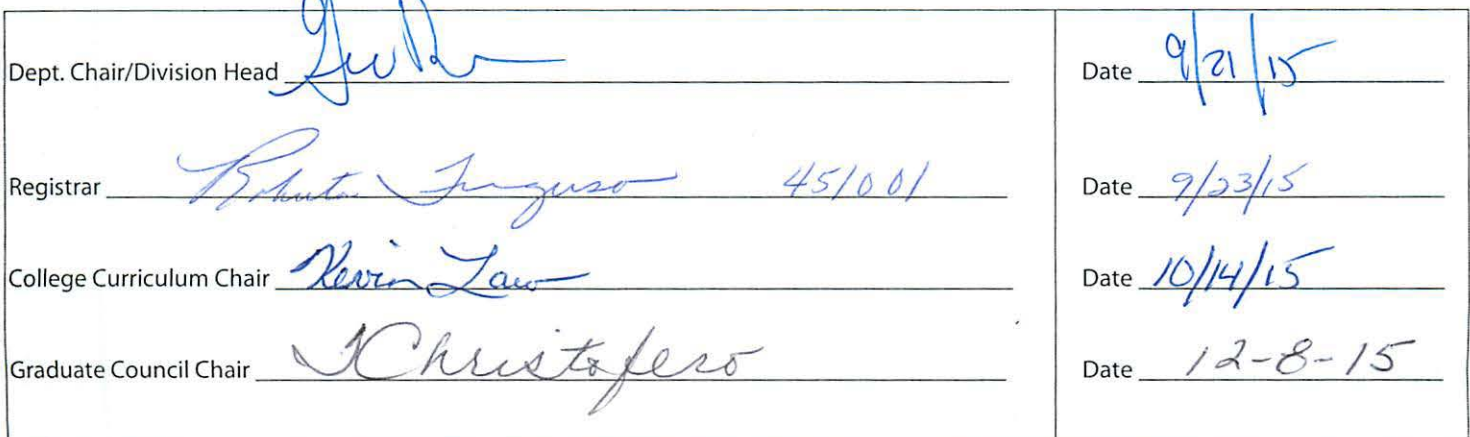 Dept. Chair/Division Head Date 9/21/15
Registrar Ferguson 451001 Date 9/23/15
College Curriculum Chair Kevin Law Date 10/14/15
Graduate Council Chair Christofero Date 12-8-15